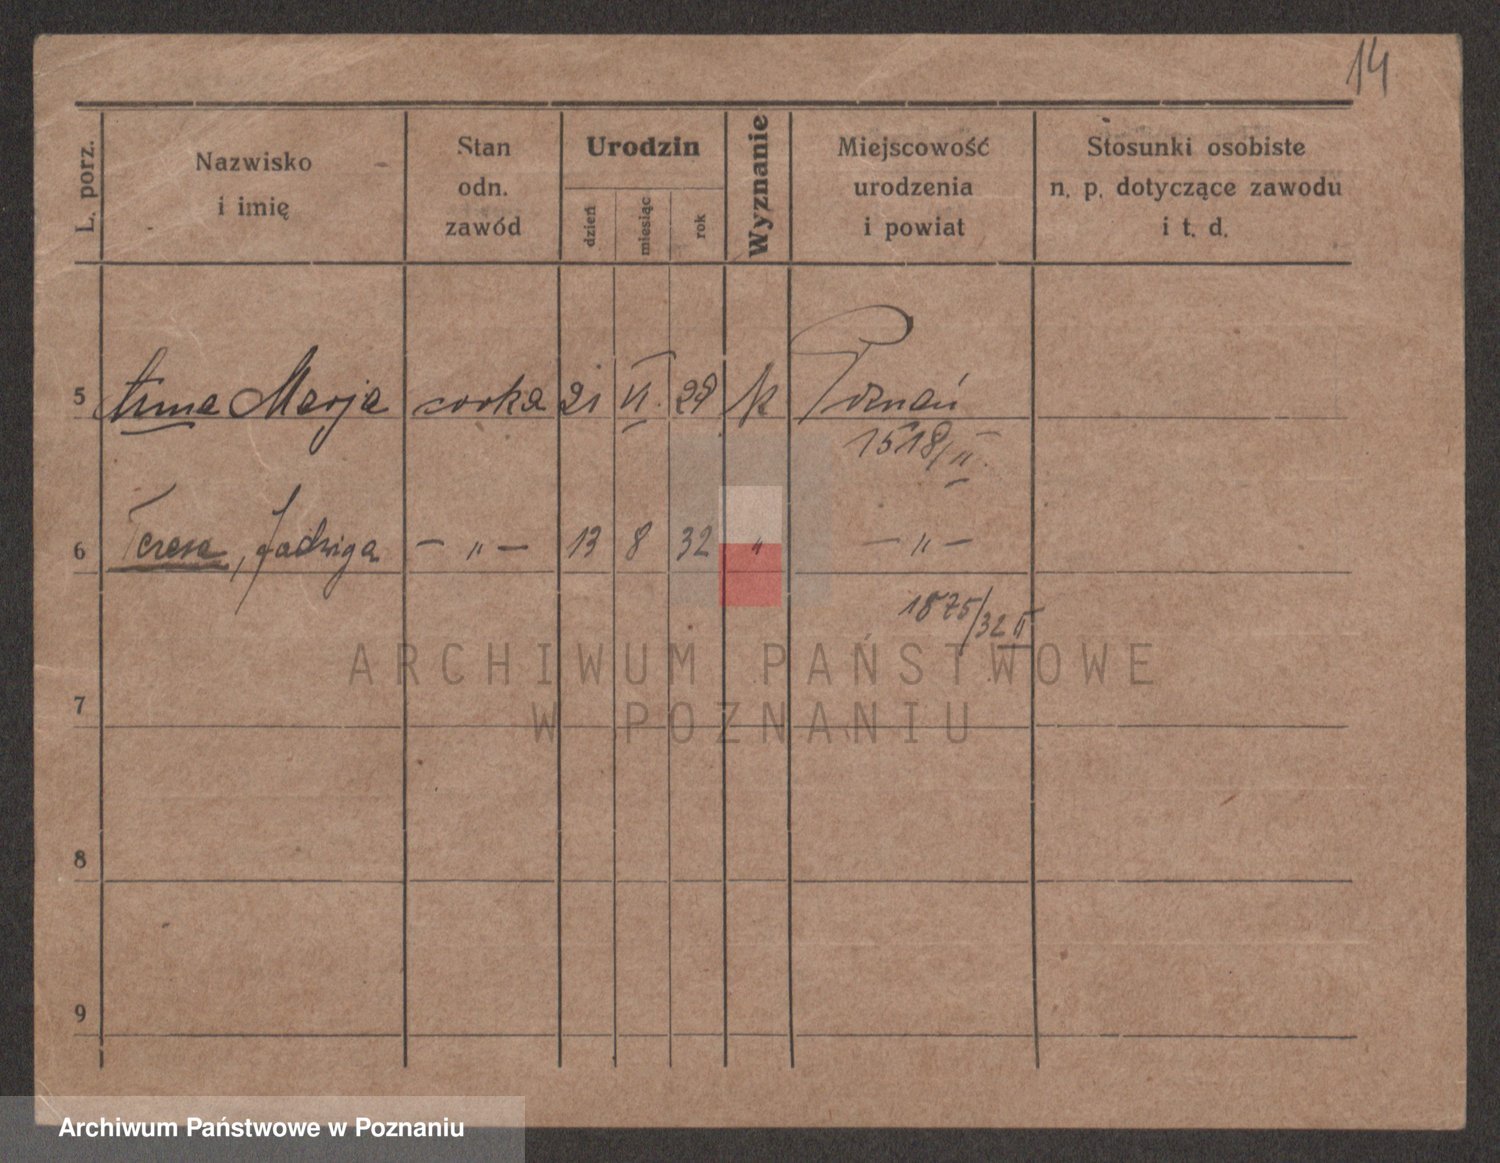 14
L. porz.
Nazwisko i imię
Stan odn. zawód
Urodzin
dzień
miesiąc
rok
Wyznanie
Miejscowość urodzenia i powiat
Stosunki osobiste n. p. dotyczące zawodu i t. d.
5 Anna Marja corka 21 VI. 29 k Poznań
1518/II.
6 Teresa, Jadwiga — „ — 13 8 32 „ — „ —
1875/32 II
7
8
9
ARCHIWUM PAŃSTWOWE
W POZNANIU
Archiwum Państwowe w Poznaniu